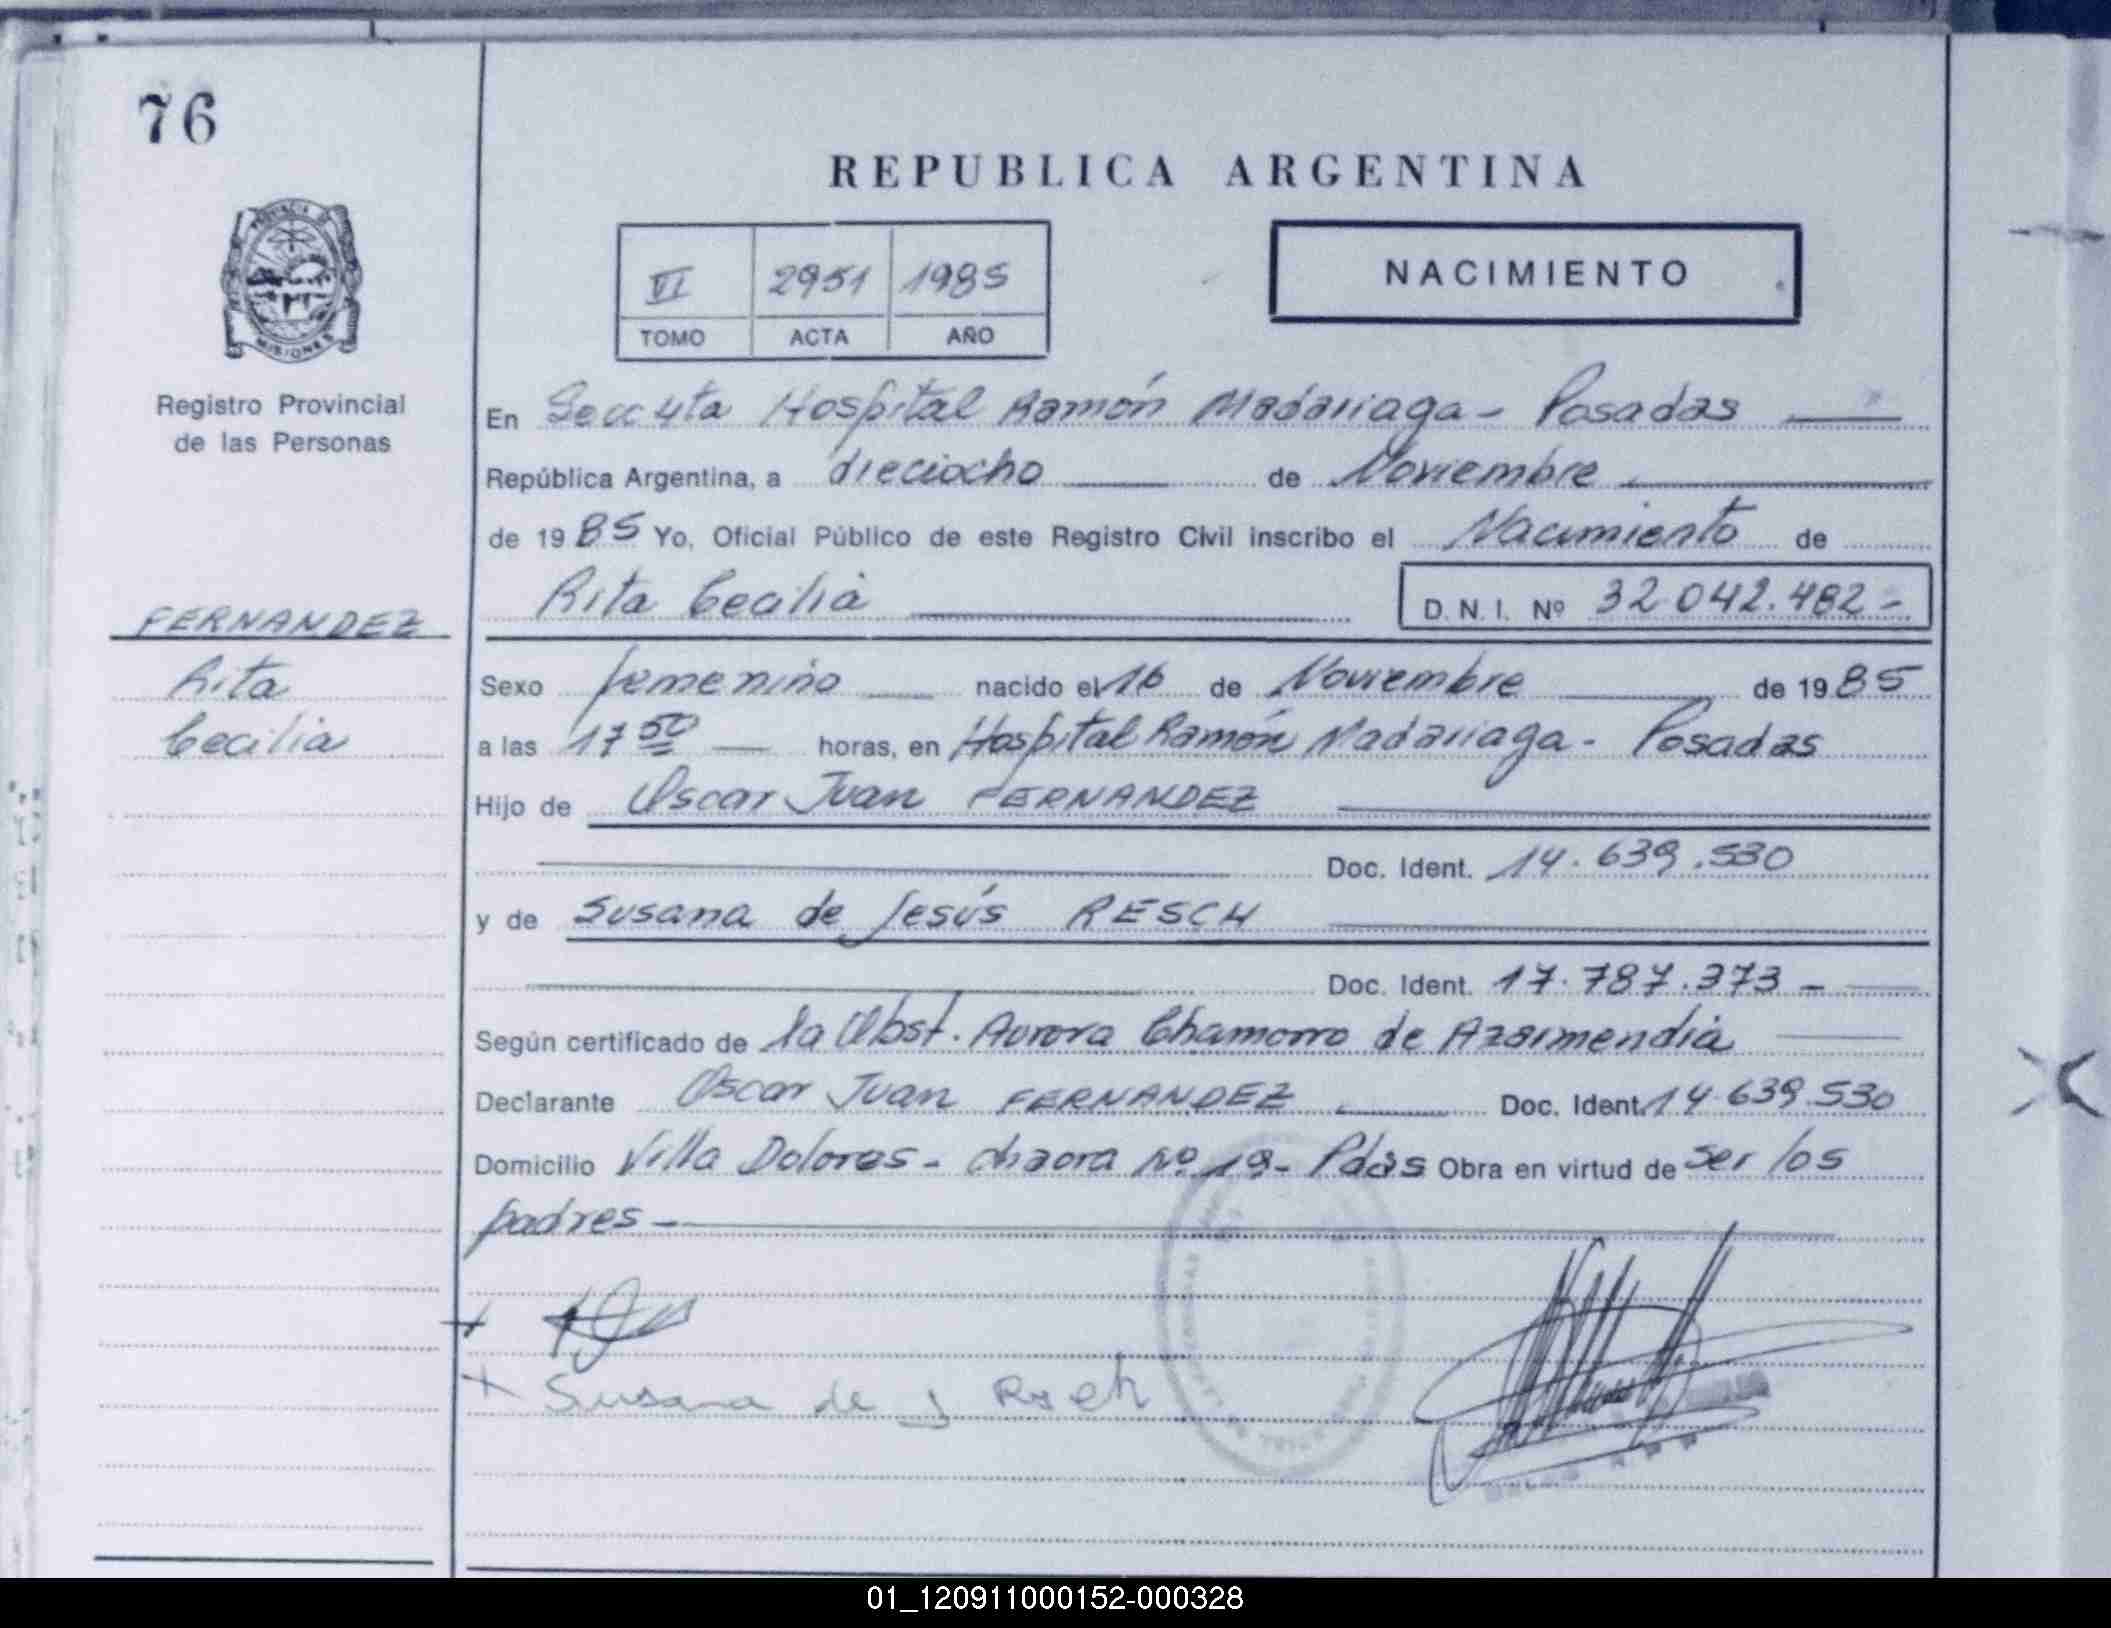 76
REPUBLICA ARGENTINA
PROVINCIA DE
MISIONES
Registro Provincial
de las Personas
VI 2951 1985
TOMO ACTA AÑO
NACIMIENTO
En Secc 4ta Hospital Ramón Madariaga - Posadas
República Argentina, a dieciocho de Noviembre
de 1985 Yo, Oficial Público de este Registro Civil inscribo el Nacimiento de
Rita Cecilia D. N. I. Nº 32.042.482-
FERNANDEZ
Rita
Cecilia
Sexo femenino nacido el 16 de Noviembre de 1985
a las 17 50 horas, en Hospital Ramón Madariaga - Posadas
Hijo de Oscar Juan FERNANDEZ
Doc. Ident. 14.639.530
y de Susana de Jesús RESCH
Doc. Ident. 17.787.373 -
Según certificado de la Obst. Aurora Chamorro de Azarmendia
Declarante Oscar Juan FERNANDEZ Doc. Ident. 14.639.530
Domicilio Villa Dolores - chacra Nº 19 - Pdas Obra en virtud de ser los
padres -
Susana de J Resch
01_120911000152-000328